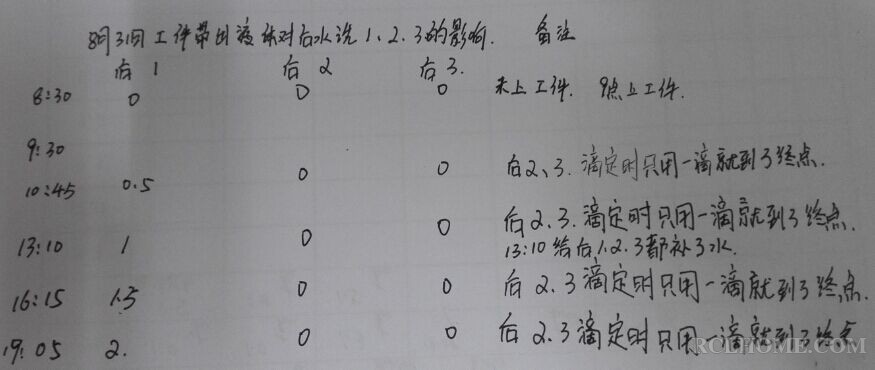 8月31日工件带出液体对后水洗1、2、3的影响. 备注
后1 后2 后3.
8:30 0 0 0 未上工件. 9点上工件.
9:30
10:45 0.5 0 0 后2、3. 滴定时只用一滴就到了终点.
13:10 1 0 0 后2.3.滴定时只用一滴就到了终点.
13:10给后1.2.3都补了水.
16:15 1.5 0 0 后2.3滴定时只用一滴就到了终点.
19:05 2. 0 0 后2.3滴定时只用一滴就到了终点
RCLHOME.COM